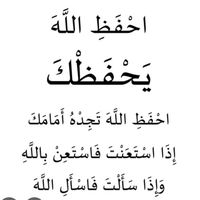 احْفَظِ اللَّهَ
يَحْفَظْكَ
احْفَظِ اللَّهَ تَجِدْهُ أَمَامَكَ
إِذَا اسْتَعَنْتَ فَاسْتَعِنْ بِاللَّهِ
وَإِذَا سَأَلْتَ فَاسْأَلِ اللَّهَ